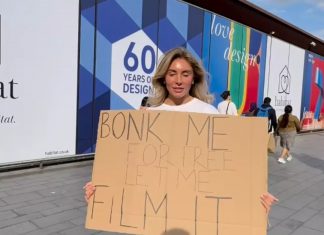 at
tat.
habitat.co.uk
60
YEARS OF
DESIGN
love
design
habitat
BONK ME
FOR FREE
LET ME
FILM IT